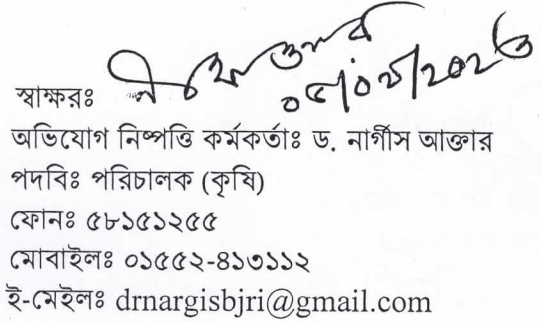 স্বাক্ষরঃ ০৫/০২/২০২৩
অভিযোগ নিষ্পত্তি কর্মকর্তাঃ ড. নার্গীস আক্তার
পদবিঃ পরিচালক (কৃষি)
ফোনঃ ৫৮১৫১২৫৫
মোবাইলঃ ০১৫৫২-৪১৩১১২
ই-মেইলঃ drnargisbjri@gmail.com